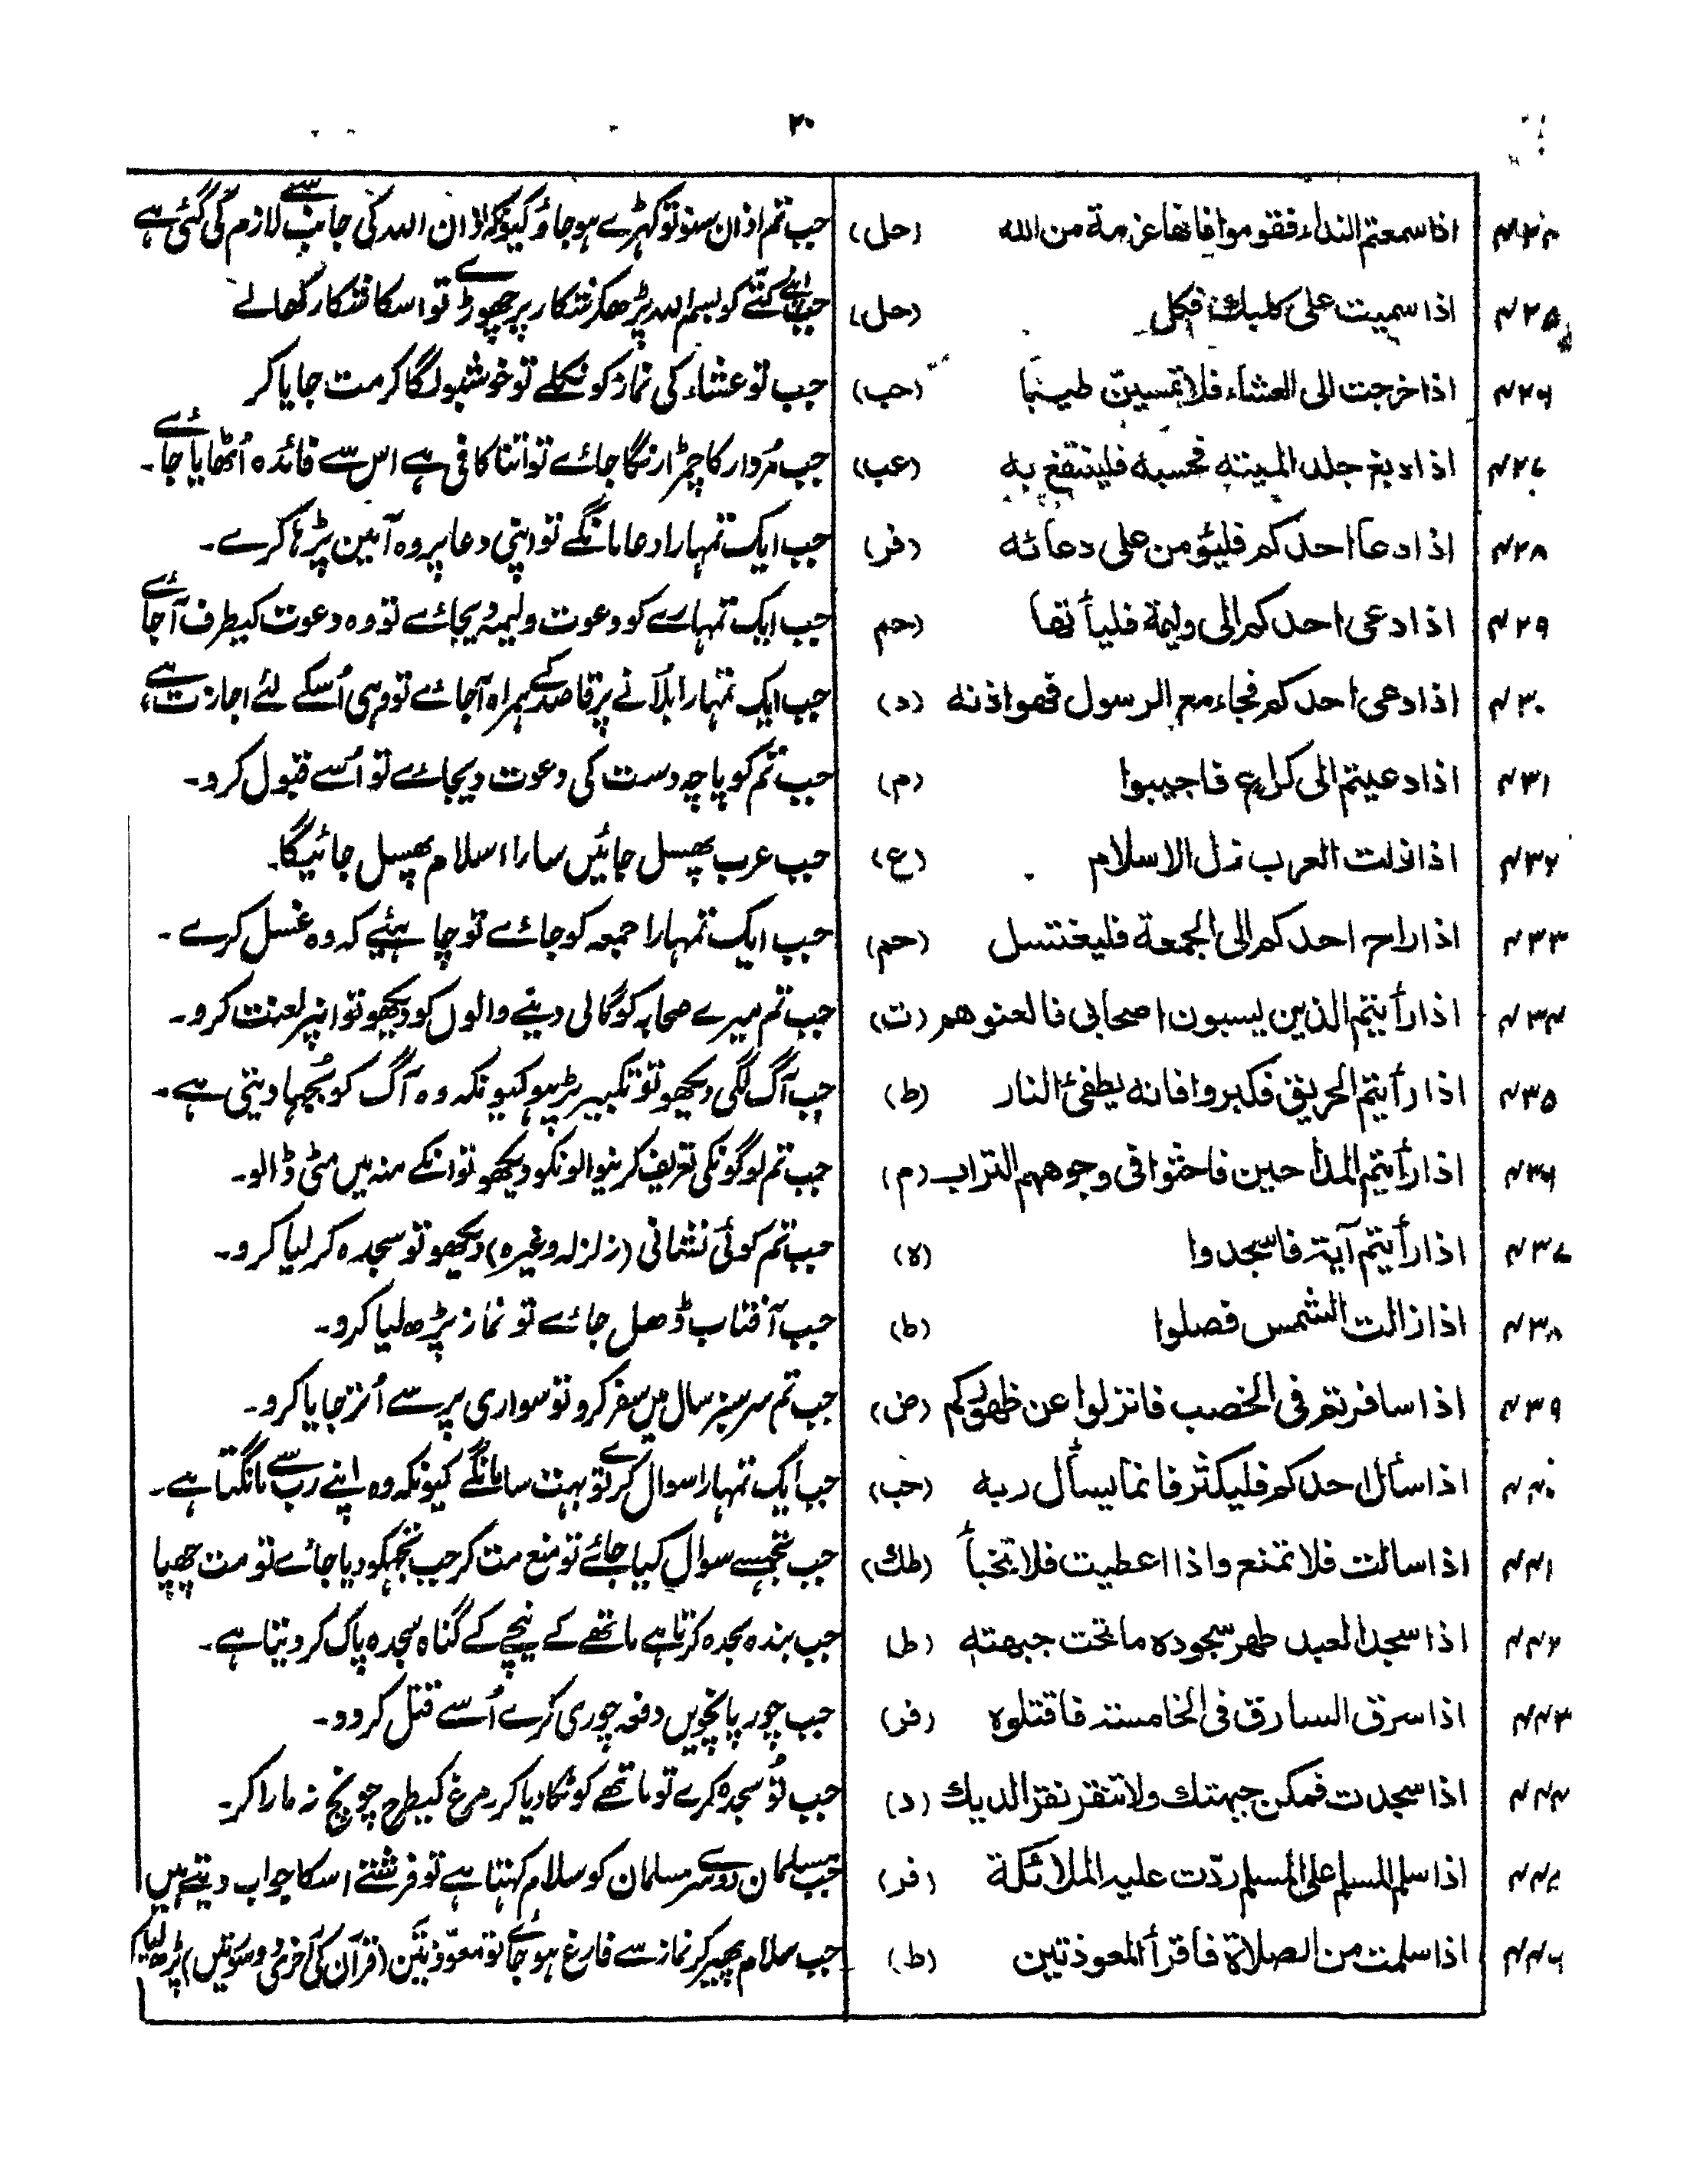 ۲۰
۴۲۴ اذا سمعتم النداء فقوموا فانها عزمة من الله (حل) جب تم اذان سنو تو کہڑے ہو جاؤ کیونکہ اذان اللہ کی جانب سے لازم کی گئی ہے
۴۲۵ اذا سميت على كلبك فكل (حل) جب اپنے کتّے کو بسم اللہ پڑھکر شکار پر چھوڑے تو اسکا شکار کھالے
۴۲۶ اذا خرجت الى العشاء فلا تمسين طيبا (حب) جب تو عشاء کی نماز کو نکلے تو خوشبو لگا کر مت جایا کر
۴۲۷ اذا دبغ جلد الميتة فحسبه فلينتفع به (عب) جب مُردار کا چمڑا رنگا جائے تو اتنا کافی ہے اس سے فائدہ اُٹھایا جائے۔
۴۲۸ اذا دعا احدكم فليؤمن على دعائه (فر) جب ایک تمہارا دعا مانگے تو اپنی دعا پر وہ آمین پڑہا کرے۔
۴۲۹ اذا دعى احدكم الى وليمة فليأتها (حم جب ایک تمہارے کو دعوت ولیمہ دیجائے تو وہ دعوت کیطرف آجائے
۴۳۰ اذا دعى احدكم فجاء مع الرسول فهو اذنه (د) جب ایک تمہارا بلانے پر قاصد کے ہمراہ آجائے تو وہی اُسکے لئے اجازت ہے،
۴۳۱ اذا دعيتم الى كراع فاجيبوا (م) جب تم کو پاچہ دست کی دعوت دیجائے تو اُسے قبول کرو۔
۴۳۲ اذا ذلت العرب ذل الاسلام (ع) جب عرب پھسل جائیں سارا اسلام پھسل جائیگا۔
۴۳۳ اذا راح احدكم الى الجمعة فليغتسل (حم) جب ایک تمہارا جمعہ کو جائے تو چاہئیے کہ وہ غسل کرے۔
۴۳۴ اذا رأيتم الذين يسبون اصحابى فالعنوهم (ت) جب تم میرے صحابہ کو گالی دینے والوں کو دیکھو تو انپر لعنت کرو۔
۴۳۵ اذا رأيتم الحريق فكبروا فانه يطفئ النار (ط) جب آگ لگی دیکھو تو تکبیر پڑہو کیونکہ وہ آگ کو بُجہا دیتی ہے۔
۴۳۶ اذا رأيتم المداحين فاحثوا فى وجوههم التراب (م) جب تم لوگونکی تعریف کرنیوالونکو دیکھو تو انکے منہ میں مٹی ڈالو۔
۴۳۷ اذا رأيتم آية فاسجدوا (ہ) جب تم کوئی نشانی (زلزلہ وغیرہ) دیکھو تو سجدہ کر لیا کرو۔
۴۳۸ اذا زالت الشمس فصلوا (ط) جب آفتاب ڈھل جائے تو نماز پڑھ لیا کرو۔
۴۳۹ اذا سافرتم فى الخصب فانزلوا عن ظهوركم (ض) جب تم سرسبز سال میں سفر کرو تو سواری پر سے اُتر جایا کرو۔
۴۴۰ اذا سأل احدكم فليكثر فانما يسأل ربه (حب) جب ایک تمہارا سوال کرے تو بہت سا مانگے کیونکہ وہ اپنے رب سے مانگتا ہے۔
۴۴۱ اذا سالت فلا تمنع واذا اعطيت فلا تخبأ (طك) جب تجہسے سوال کیا جائے تو منع مت کر جب تجہکو دیا جائے تو مت چھپا
۴۴۲ اذا سجد العبد طهر سجوده ما تحت جبهته (ط) جب بندہ سجدہ کرتا ہے ماتھے کے نیچے کے گناہ سجدہ پاک کر دیتا ہے۔
۴۴۳ اذا سرق السارق فى الخامسة فاقتلوه (فر) جب چور پانچویں دفعہ چوری کرے اُسے قتل کر دو۔
۴۴۴ اذا سجدت فمكن جبهتك ولا تنقر نقر الديك (د) جب تُو سجدہ کرے تو ماتھے کو ٹکا دیا کر مرغ کیطرح چونچ نہ مارا کر۔
۴۴۵ اذا سلم المسلم على المسلم ردّت عليه الملائكة (فر) جب مسلمان دوسرے مسلمان کو سلام کہتا ہے تو فرشتے اسکا جواب دیتے ہیں
۴۴۶ اذا سلمت من الصلاة فاقرأ المعوذتين (ط) جب سلام پھیر کر نماز سے فارغ ہو جائے تو معوّذتین (قرآن کی آخری دو سورتیں) پڑھ لیا کر